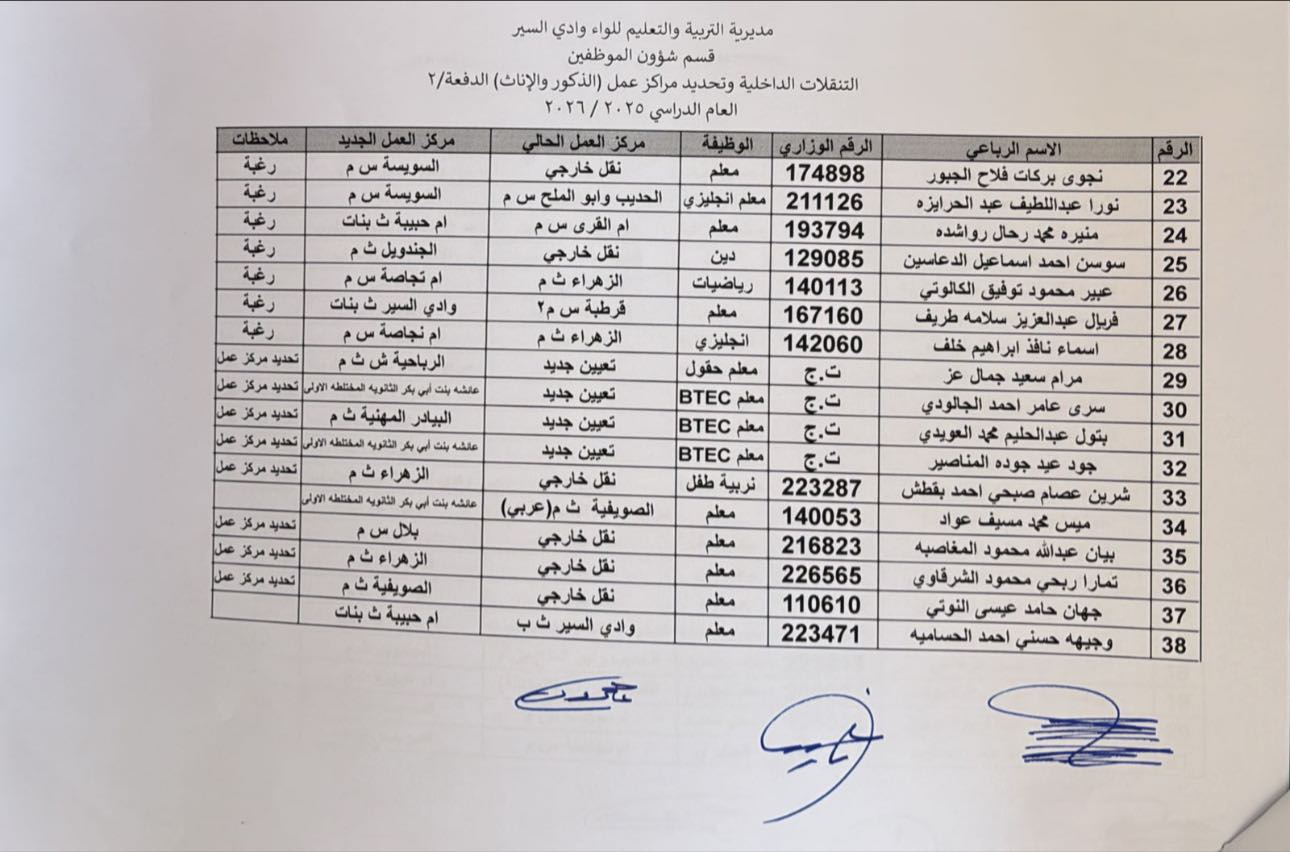 مديرية التربية والتعليم للواء وادي السير
قسم شؤون الموظفين
التنقلات الداخلية وتحديد مراكز عمل (الذكور والإناث) الدفعة/٢
العام الدراسي ٢٠٢٥ / ٢٠٢٦
الرقم الاسم الرباعي الرقم الوزاري الوظيفة مركز العمل الحالي مركز العمل الجديد ملاحظات
22 نجوى بركات فلاح الجبور 174898 معلم نقل خارجي السويسة س م رغبة
23 نورا عبداللطيف عبد الحرايزه 211126 معلم انجليزي الحديب وابو الملح س م السويسة س م رغبة
24 منيره محمد رحال رواشده 193794 معلم ام القرى س م ام حبيبة ث بنات رغبة
25 سوسن احمد اسماعيل الدعاسين 129085 دين نقل خارجي الجندويل ث م رغبة
26 عبير محمود توفيق الكالوتي 140113 رياضيات الزهراء ث م ام تجاصة س م رغبة
27 فريال عبدالعزيز سلامه طريف 167160 معلم قرطبة س م٢ وادي السير ث بنات رغبة
28 اسماء نافذ ابراهيم خلف 142060 انجليزي الزهراء ث م ام نجاصة س م رغبة
29 مرام سعيد جمال عز ت.ج معلم حقول تعيين جديد الرباحية ش ث م تحديد مركز عمل
30 سرى عامر احمد الجالودي ت.ج معلم BTEC تعيين جديد عائشه بنت أبي بكر الثانويه المختلطه الاولى تحديد مركز عمل
31 بتول عبدالحليم محمد العويدي ت.ج معلم BTEC تعيين جديد البيادر المهنية ث م تحديد مركز عمل
32 جود عيد جوده المناصير ت.ج معلم BTEC تعيين جديد عائشه بنت أبي بكر الثانويه المختلطه الاولى تحديد مركز عمل
33 شرين عصام صبحي احمد بقطش 223287 نربية طفل نقل خارجي الزهراء ث م تحديد مركز عمل
34 ميس محمد مسيف عواد 140053 معلم الصويفية ث م(عربي) عائشه بنت أبي بكر الثانويه المختلطه الاولى
35 بيان عبدالله محمود المغاصبه 216823 معلم نقل خارجي بلال س م تحديد مركز عمل
36 تمارا ربحي محمود الشرقاوي 226565 معلم نقل خارجي الزهراء ث م تحديد مركز عمل
37 جهان حامد عيسى النوتي 110610 معلم نقل خارجي الصويفية ث م تحديد مركز عمل
38 وجيهه حسني احمد الحساميه 223471 معلم وادي السير ث ب ام حبيبة ث بنات